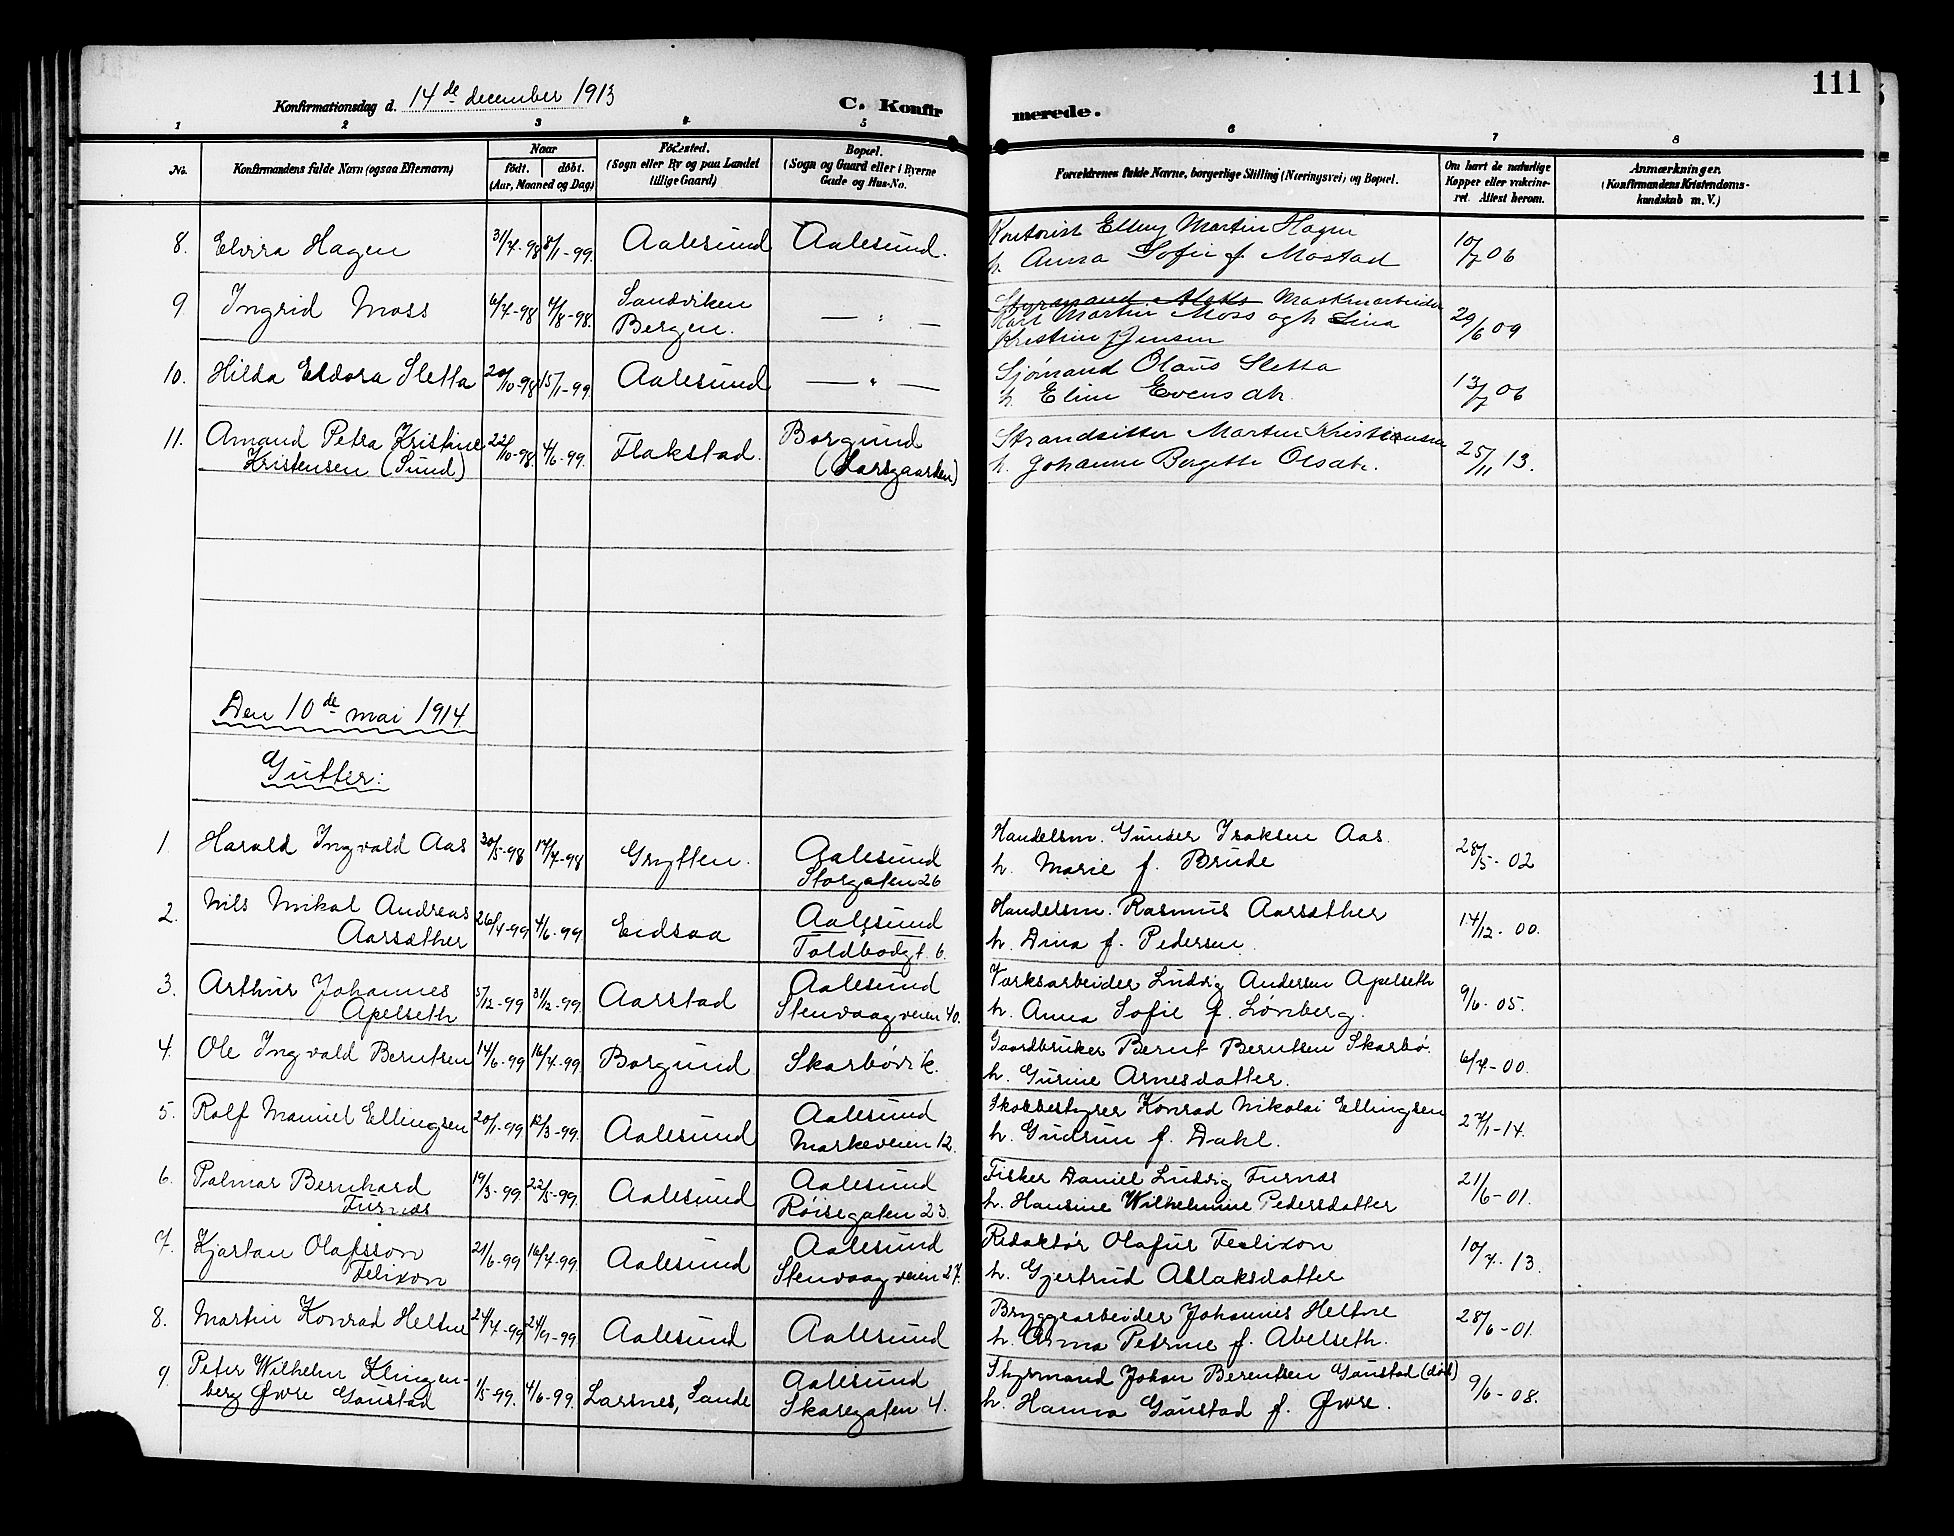 111
Konfirmationsdag d. 14de december 1913
C. Konfirmerede.
1 2 3 4 5 6 7 8
No. Konfirmandens fulde Navn (ogsaa Efternavn) Naar født. døbt. (Aar, Maaned og Dag) Fødested. (Sogn eller By og paa Landet tillige Gaard) Bopæl. (Sogn og Gaard eller i Byerne Gade og Hus-No. Forældrenes fulde Navne, borgerlige Stilling (Næringsvei) og Bopæl. Om havt de naturlige Kopper eller vakcineret. Attest herom. Anmærkninger. (Konfirmandens Kristendomskundskab m. V.)
8. Elvira Hagen 31/7-98 8/1-99. Aalesund Aalesund. Kontorist Elling Martin Hagen
h. Anna Sofie f. Mostad 10/7 06
9. Ingrid Moss 6/7-98 7/8-98. Sandviken Bergen. — " — Styrmand Maskinarbeider
Karl Martin Moss og h. Lina
Kristine f Jensen 29/6 09
10. Hilda Eldora Sletta 20/10-98 15/1-99. Aalesund — " — Sjømand Olaus Sletta
h. Eline Evensdtr. 13/7 06
11. Amand Petra Kristine 22/10-98. 4/6-99. Flakstad. Borgund
Kristensen (Sund) (Larsgaarden) Strandsitter Martin Kristensen
h. Johanne Bergette Olsdtr. 25/11 13.
Den 10de mai 1914.
Gutter:
1. Harald Ingvald Aas 30/5-98 17/7-98 Grytten. Aalesund
Storgaten 26 Handelsm. Gunder Isaksen Aas.
h. Marie f. Brude 28/5-02
2. Nils Mikal Andreas
Aarsæther 26/4-99 4/6-99 Eidsaa Aalesund
Toldbodgt. 6. Handelsm. Rasmus Aarsæther
h. Dina f. Pedersen. 14/12-00.
3. Arthur Johannes
Apelseth 5/12-99 31/12-99. Aarstad Aalesund
Stenvaagveien 40. Værksarbeider Ludvig Andersen Apelseth
h. Anna Sofie f. Lønberg. 9/6-05.
4. Ole Ingvald Berntsen 14/6-99 16/7-99. Borgund Skarbøvik. Gaardbruker Bernt Berntsen Skarbø.
h. Gurine Arnesdatter. 6/7-00.
5. Rolf Manuel Ellingsen 20/1-99 12/3-99. Aalesund Aalesund
Markeveien 12. Skobestyrer Konrad Nikolai Ellingsen
h. Gudrun f. Dahl. 27/1-14.
6. Palmar Bernhard
Furnæs 19/3-99 22/5-99. Aalesund Aalesund
Røisegaten 23. Fisker Daniel Ludvig Furnæs
h. Hansine Wilhelmine Pedersdatter 21/6-01.
7. Kjartan Olafsson
Felixon 21/6-99 16/7-99. Aalesund Aalesund
Stenvaagveien 27. Redaktør Olafur Felixon
h. Gjertrud Aslaksdatter 10/7-13.
8. Martin Konrad Heltne 24/7-99 24/9-99 Aalesund Aalesund Bryggearbeider Johannes Heltne
h. Anna Petrine f. Abelseth. 28/6-01.
9. Peter Wilhelm Klingen-
berg Øvre Gaustad 1/5-99. 4/6-99. Larsnes, Sande Aalesund
Skaregaten 4. Styrmand Johan Berentsen Gaustad (død)
h. Hanna Gaustad f. Øvre. 9/6-08.